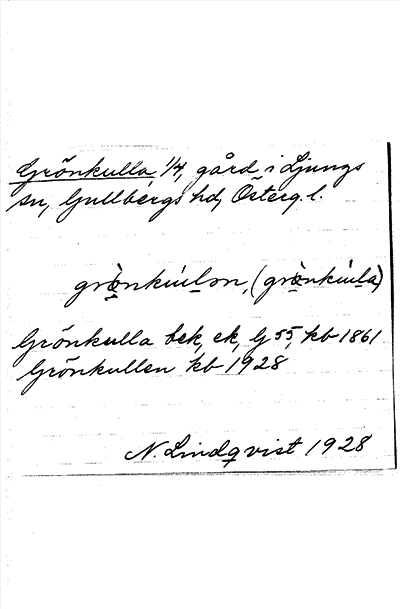 Grönkulla 1/4, gård i Ljungs
sn, Gullbergs hd, Österg. l.
grö̀nkúlən, (grö̀nkúla)
Grönkulla bek, ek, G 55, kb 1861
Grönkullen kb 1928
N. Lindqvist 1928